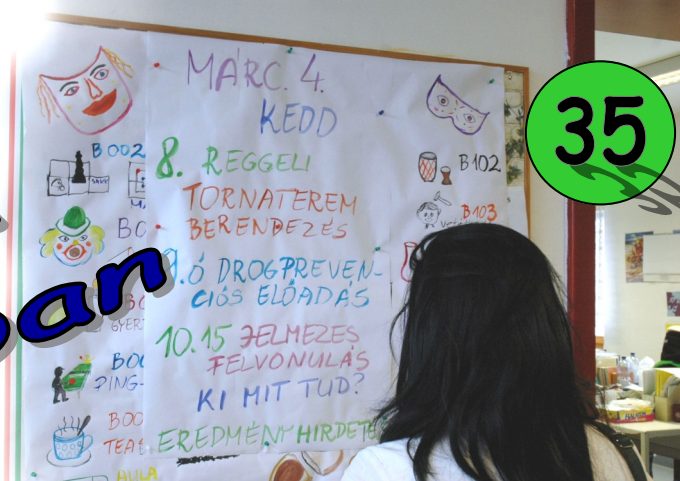 MÁRC. 4.
KEDD
8. REGGELI
TORNATEREM
BERENDEZÉS
9.ó DROGPREVEN-
CIÓS ELŐADÁS
10.15 JELMEZES
FELVONULÁS
KI MIT TUD?
EREDMÉNYHIRDETÉ
B 002
BO
BOO
PING-
BOO
TEA
AULA
B102
B103
35
ban